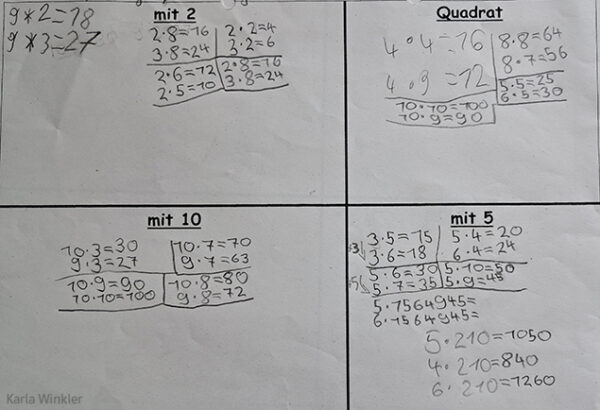 9*2=18
9*3=27
mit 2
2·8=16
3·8=24
2·2=4
3·2=6
2·6=12
2·5=10
2·8=16
3·8=24
Quadrat
4·4=16
4·9=12
8·8=64
8·7=56
5·5=25
6·5=30
10·10=100
10·9=90
mit 10
10·3=30
9·3=27
10·7=70
9·7=63
10·9=90
10·10=100
10·8=80
9·8=72
mit 5
3·5=15
3·6=18
5·4=20
6·4=24
5·6=30
5·7=35
5·10=50
5·9=45
5·1564945=
6·1564945=
5·210=1050
4·210=840
6·210=1260
Karla Winkler